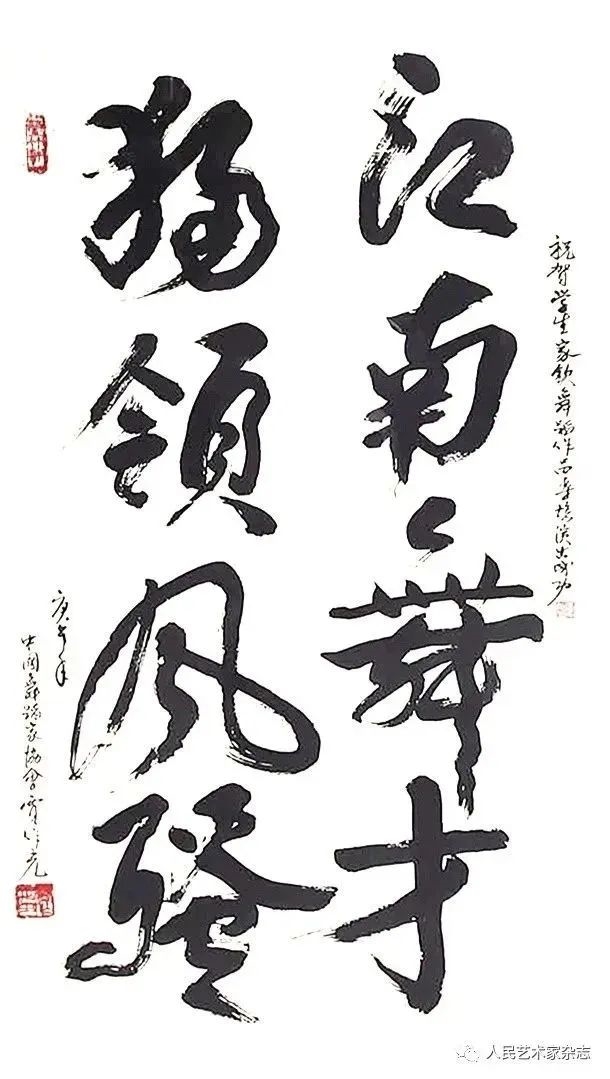 祝贺学生家钦舞蹈作品专场演出成功
江南舞才
独領风骚
庚午年
中国舞蹈家协会贾作光
人民艺术家杂志